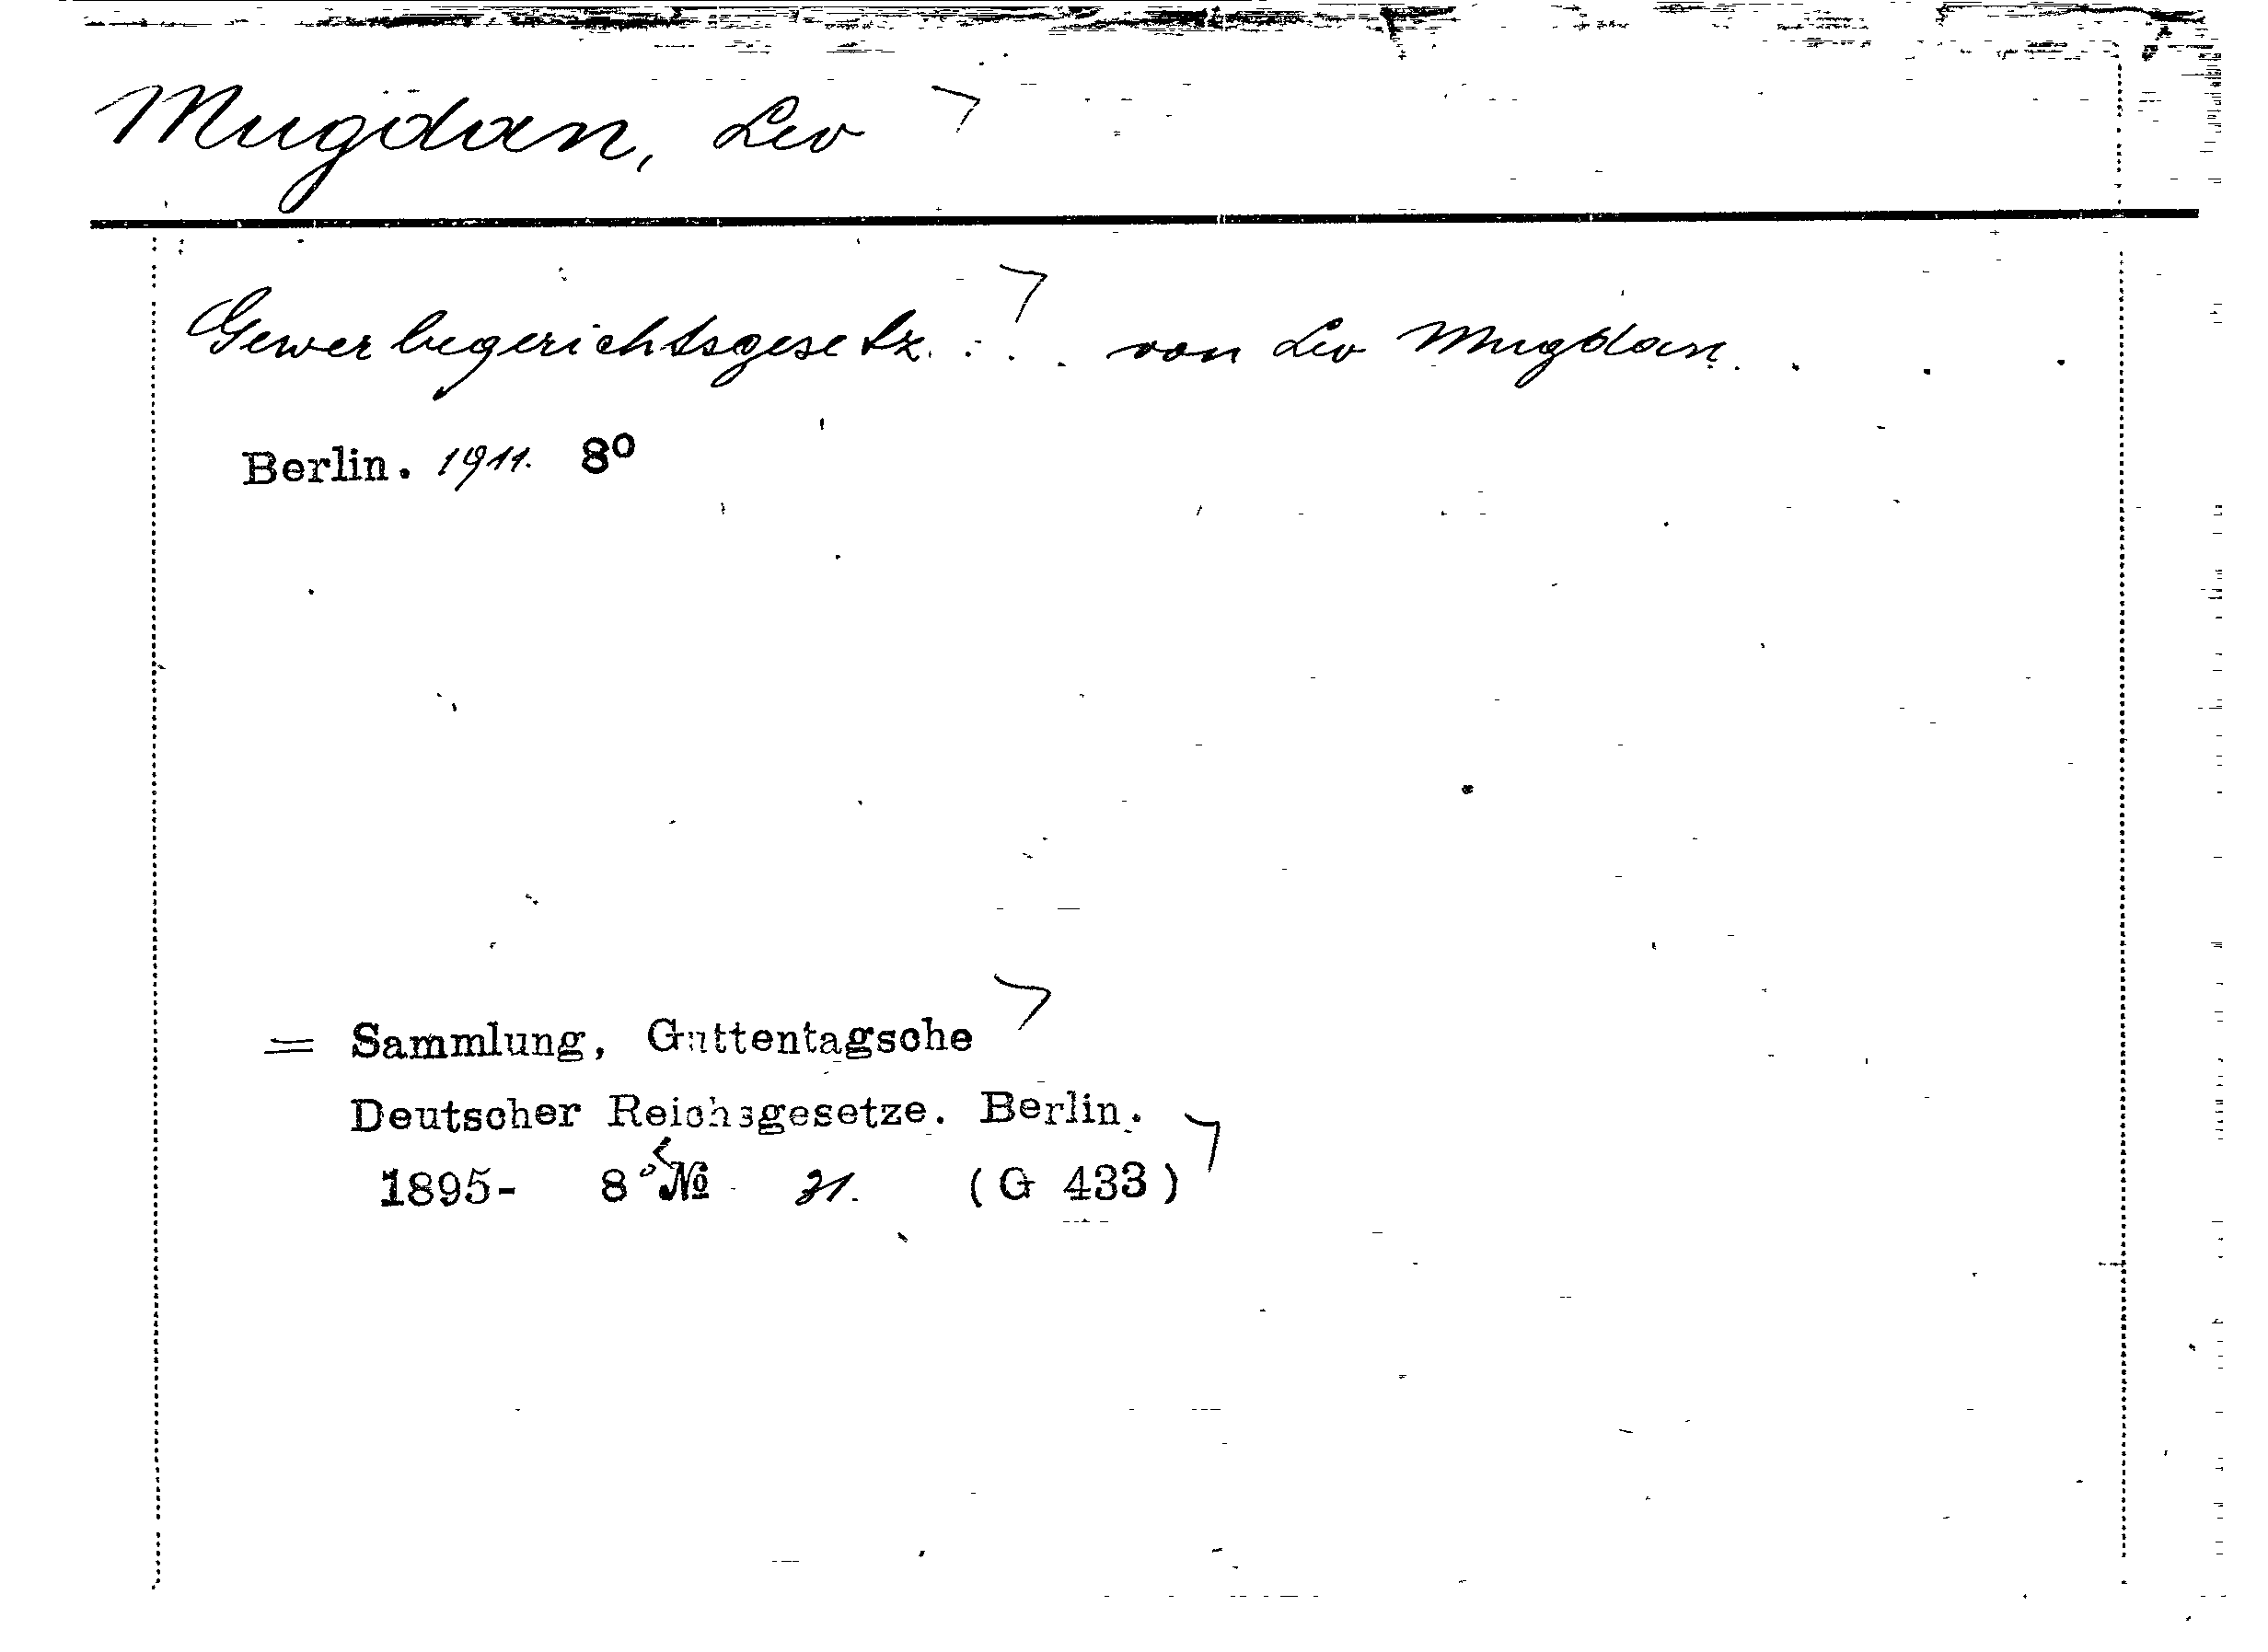 Mugdan, Leo
Gewerbegerichtsgesetz . . . von Leo Mugdan.
Berlin. 1911. 8º
= Sammlung, Guttentagsche
Deutscher Reichsgesetze. Berlin.
1895- 8º № 31. (G 433)